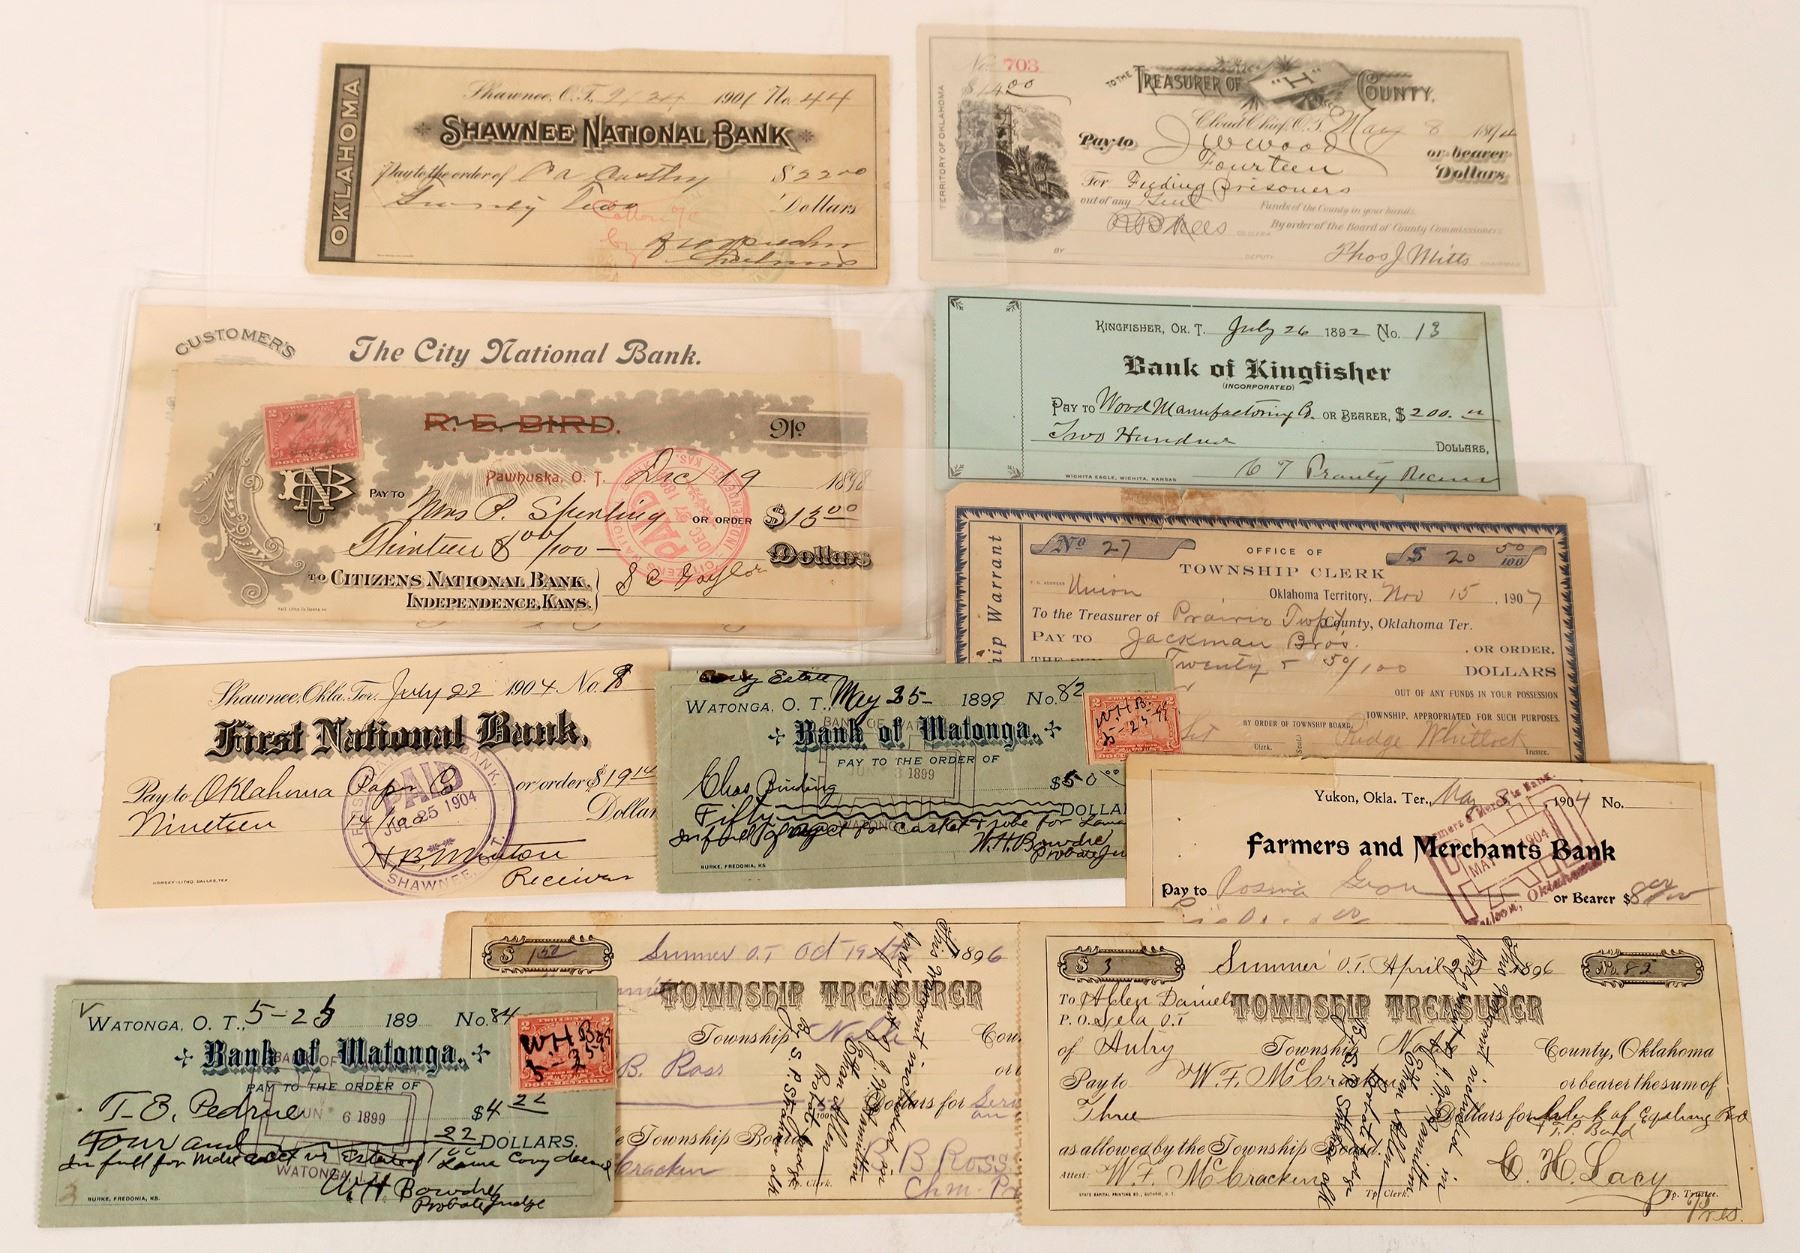 OKLAHOMA
Shawnee, O.T., 9/24 1901 No. 44
SHAWNEE NATIONAL BANK
Pay to the order of $22 00
Twenty Two Dollars
Cotton a/c
No. 703
$14.00
TERRITORY OF OKLAHOMA
TO THE TREASURER OF "H" COUNTY,
Cloud Chief, O.T. May 8 1894
Pay to J W Wood or bearer
Fourteen Dollars
For Feeding prisoners
out of any Funds of the County in your hands.
By order of the Board of County Commissioners
BY DEPUTY Thos J Mitts CHAIRMAN
CUSTOMER'S
The City National Bank.
R. E. BIRD.
PAWHUSKA, O. T. Dec 19 1898
PAY TO Mrs P. Sperling OR ORDER $13 00
Thirteen & 00/100 Dollars
TO CITIZENS NATIONAL BANK,
INDEPENDENCE, KANS.
S C Gaylor
PAID
KINGFISHER, OK. T. July 26 1892 No. 13
Bank of Kingfisher
(INCORPORATED)
PAY TO Wood Manufacturing Co. OR BEARER, $200.00
Two Hundred DOLLARS,
WICHITA EAGLE, WICHITA, KANSAS
No 27
OFFICE OF
$ 20 50/100
TOWNSHIP CLERK
ship Warrant
P. O. ADDRESS Union Oklahoma Territory, Nov 15, 1907
To the Treasurer of Prairie Twp County, Oklahoma Ter.
PAY TO Jackman Bro's. OR ORDER.
THE SUM Twenty & 50/100 DOLLARS
OUT OF ANY FUNDS IN YOUR POSSESSION
BY ORDER OF TOWNSHIP BOARD, TOWNSHIP, APPROPRIATED FOR SUCH PURPOSES.
Clerk. (Seal) Ridge Whitlock Trustee.
Shawnee, Okla. Ter. July 22 1904. No. 8
First National Bank,
Pay to Oklahoma Pap. Co or order $19.14
Nineteen 14/100 Dollar
H B Minton
Receiver
FIRST NATIONAL BANK.
PAID
JUL 25 1904
SHAWNEE, O. T.
Cory Estate
WATONGA, O. T., May 25- 1899 No. 82
Bank of Watonga.
PAY TO THE ORDER OF
JUN 3 1899
Chas Binding $50.00
Fifty DOLLA
In full payment for Casket & robe for Laura
W. H. Bowdre
Probate Ju
BURKE, FREDONIA, KS.
W.H.B.
5-25-99
Yukon, Okla. Ter., May 1904 No.
Farmers and Merchants Bank
Pay to Rosina or Bearer $8
Farmers & Merchants Bank.
PAID
MAY 1904
Yukon, Oklahoma
WATONGA, O. T., 5-25 189 No. 84
Bank of Watonga.
PAY TO THE ORDER OF
JUN 6 1899
T. E. Pedrue $4 22
Four and 22/100 DOLLARS.
In full for Estate of Laura Cory deceased
W H Bowdre
Probate Judge
BURKE, FREDONIA, KS.
W.H.B.
5-25-99
DOCUMENTARY
$ 1 50 Sumner O.T. Oct 19 1896
TOWNSHIP TREASURER
Township Noble Cou
B. Ross
Dollars for Serv
Township Board
McCracken
B B Ross
Chm.
$ 3 Sumner O.T. April 1896 No. 82
To Helen Daniels TOWNSHIP TREASURER
P. O. Lela O.T
of Autry Township Noble County, Oklahoma
Pay to W. F. McCracken or bearer the sum of
Three Dollars for Clerk of
as allowed by the Township Board.
Attest: W. F. McCracken Tp. Clerk. C. H. Lacy Tp. Trustee.
STATE CAPITAL PRINTING CO., GUTHRIE, O. T.
Pres.